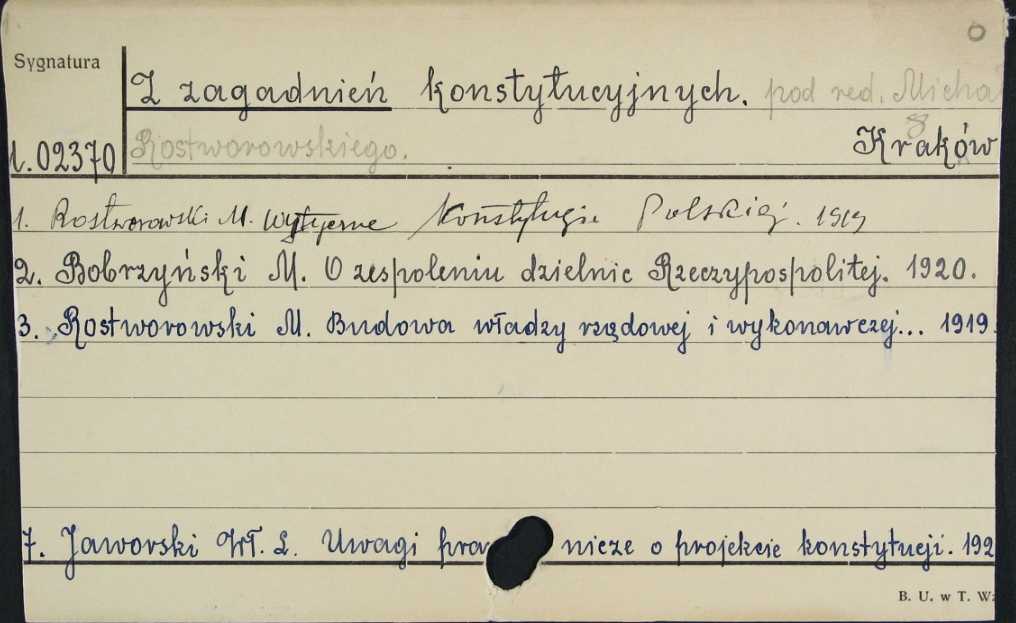 0
Sygnatura
Z zagadnień konstytucyjnych. pod red. Micha
8
1.02370 Rostworowskiego. Kraków
1. Rostworowski M. Wytyczne Konstytucji Polskiej. 1919
2. Bobrzyński M. O zespoleniu dzielnic Rzeczypospolitej. 1920.
3. Rostworowski M. Budowa władzy rządowej i wykonawczej... 1919.
7. Jaworski Wł. L. Uwagi pra nicze o projekcie konstytucji. 192
B. U. w T. W: